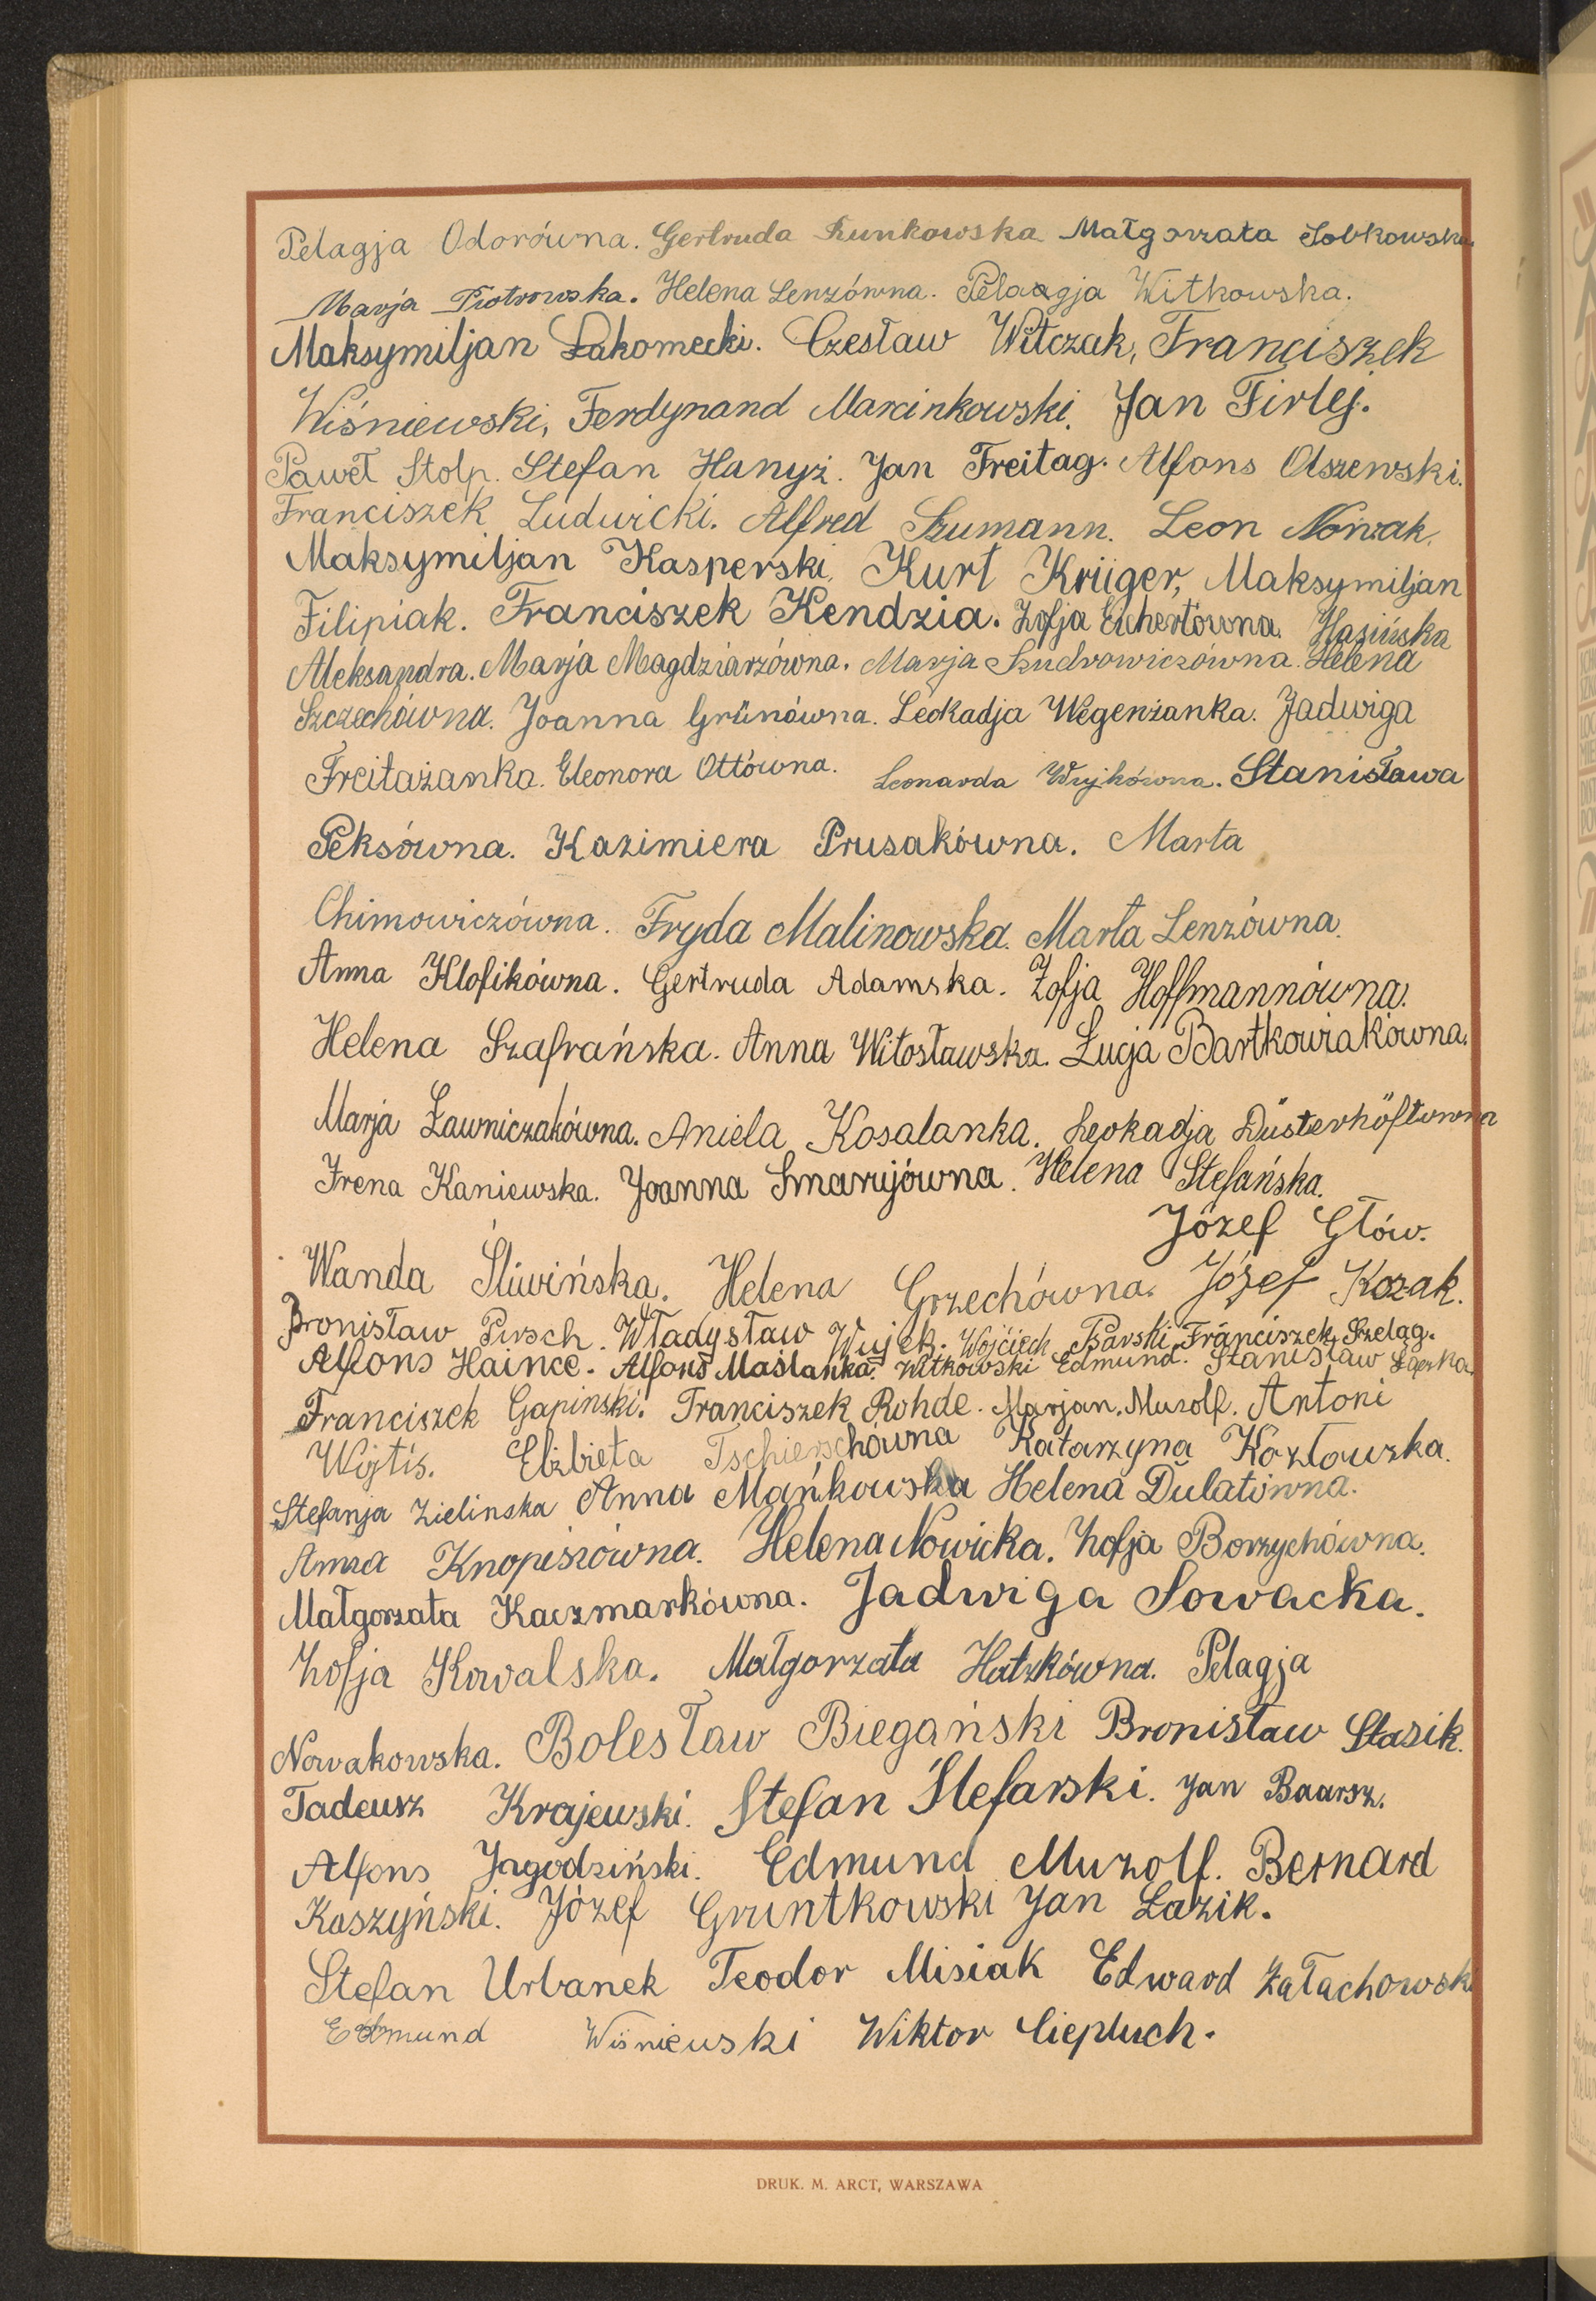 Pelagja Odorówna. Gertruda Runkowska Małgorzata Sobkowska
Marja Piotrowska. Helena Lenzówna. Pelaagja Witkowska.
Maksymiljan Łakomecki. Czesław Witczak, Franciszek
Wiśniewski, Ferdynand Marcinkowski. Jan Firlej.
Paweł Stolp. Stefan Hanyż. Jan Freitag. Alfons Olszewski.
Franciszek Ludwicki. Alfred Szumann. Leon Nowak.
Maksymiljan Kasperski, Kurt Krüger, Maksymiljan
Filipiak. Franciszek Kendzia. Zofja Eichertówna. Hasińska
Aleksandra. Marja Magdziarzówna. Marja Szudrowiczówna. Helena
Szczechówna. Joanna Grünówna. Leokadja Wegenżanka. Jadwiga
Freitażanka. Eleonora Ottówna. Leonarda Wujkówna. Stanisława
Peksówna. Kazimiera Prusakówna. Marta
Chimowiczówna. Fryda Malinowska. Marta Lenzówna.
Anna Klofikówna. Gertruda Adamska. Zofja Hoffmannówna.
Helena Szafrańska. Anna Witosławska. Łucja Bartkowiakówna.
Marja Ławniczakówna. Aniela Kosalanka. Leokadja Düsterhöftówna
Irena Kaniewska. Joanna Smarujówna. Helena Stefańska.
Józef Głów.
Wanda Śliwińska. Helena Grzechówna. Józef Kozak.
Bronisław Pusch. Władysław Wujek. Wojciech Psarski. Franciszek Szeląg.
Alfons Haince. Alfons Maślanka. Witkowski Edmund. Stanisław
Franciszek Gapinski. Franciszek Rohde. Marjan. Muzolf. Antoni
Wojtis. Elżbieta Tschierschówna Katarzyna Kozłowska.
Stefanja Zielinska Anna Mańkowska Helena Dulatówna.
Anna Knopiszówna. Helena Nowicka. Zofja Borzychówna.
Małgorzata Kaczmarkówna. Jadwiga Sowacka.
Zofja Kowalska. Małgorzata Hatzkówna. Pelagja
Nowakowska. Bolesław Biegański Bronisław Stasik.
Tadeusz Krajewski. Stefan Stefański. Jan Baarsz.
Alfons Jagodziński. Edmund Muzolf. Bernard
Koszyński. Józef Gruntkowski Jan Łazik.
Stefan Urbanek Teodor Misiak Edward Załachowski
Edmund Wiśniewski Wiktor Ciepluch.
DRUK. M. ARCT, WARSZAWA